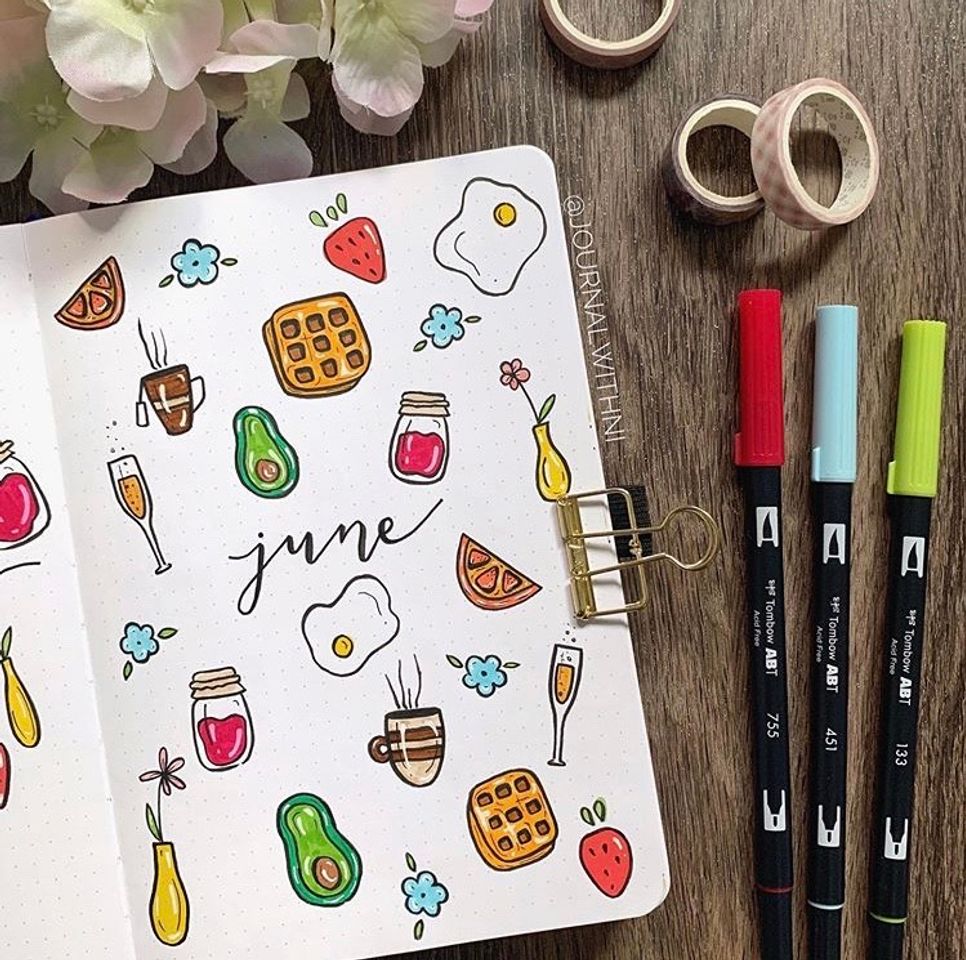 @JOURNALWITHNI
june
Tombow ABT
Acid Free
755
Tombow ABT
Acid Free
451
Tombow ABT
Acid Free
133